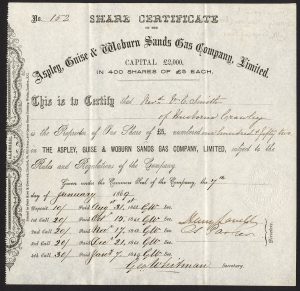 No. 152
SHARE CERTIFICATE
IN THE
Aspley, Guise & Woburn Sands Gas Company, Limited.
CAPITAL £2,000,
IN 400 SHARES OF £5 EACH.
This is to Certify that Revd. V. C. Smith
of Husborne Crawley
is the Proprietor of One Share of £5, numbered one hundred & fifty two
in THE ASPLEY, GUISE & WOBURN SANDS GAS COMPANY, LIMITED, subject to the
Rules and Regulations of the Company.
Given under the Common Seal of the Company, the 7th
day of January 1869
Deposit 10/ Paid Aug. 31, GW Sec.
1st Call 20/ Paid Oct. 13, GW Sec.
2nd Call 20/ Paid Nov. 17, GW Sec.
3rd Call 20/ Paid Dec. 21, GW Sec.
4th Call 30/ Paid Jany 7, GW Sec.
Parker
Directors.
Geo Whitman Secretary.